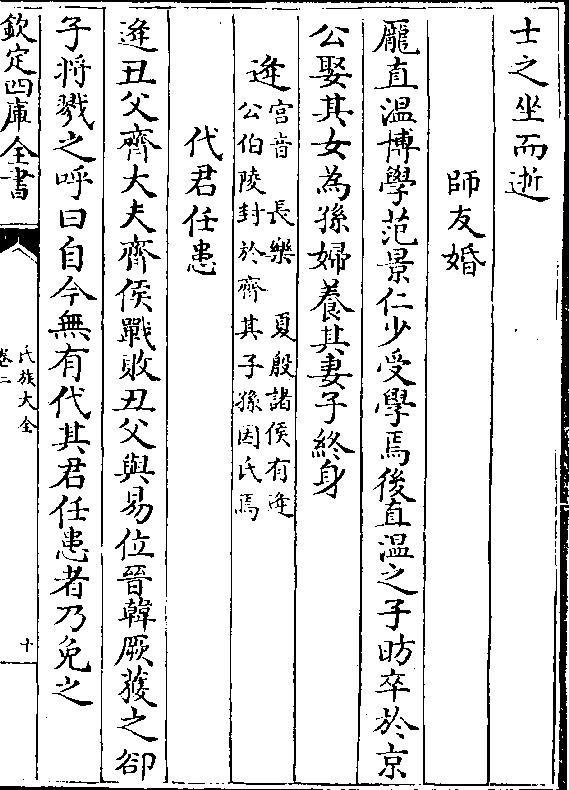 士之坐而逝
師友婚
龎直溫博學范景仁少受學焉後直溫之子昉卒於京
公娶其女為孫婦養其妻子終身
逄
宫音 長樂 夏殷諸侯有逄
公伯陵封於齊其子孫因氏焉
代君任患
逄丑父齊大夫齊侯戰敗丑父與易位晉韓厥獲之郤
子將戮之呼曰自今無有代其君任患者乃免之
欽定四庫全書
氏族大全
卷二
十